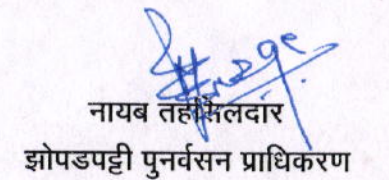 नायब तहसिलदार
झोपडपट्टी पुनर्वसन प्राधिकरण